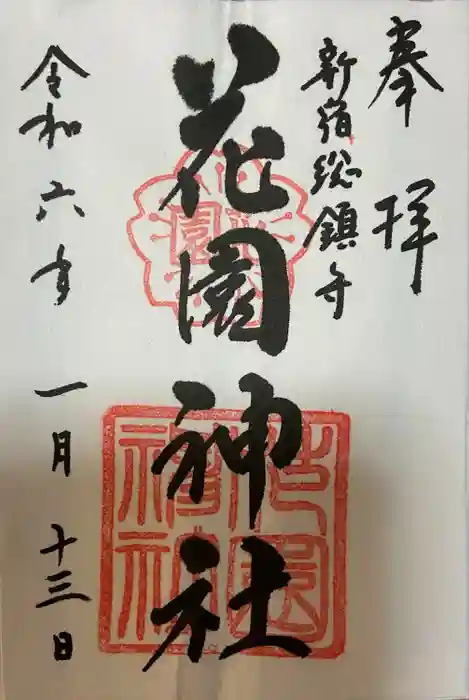 奉拝
新宿総鎮守
花園神社
令和六年一月十三日
花園神社